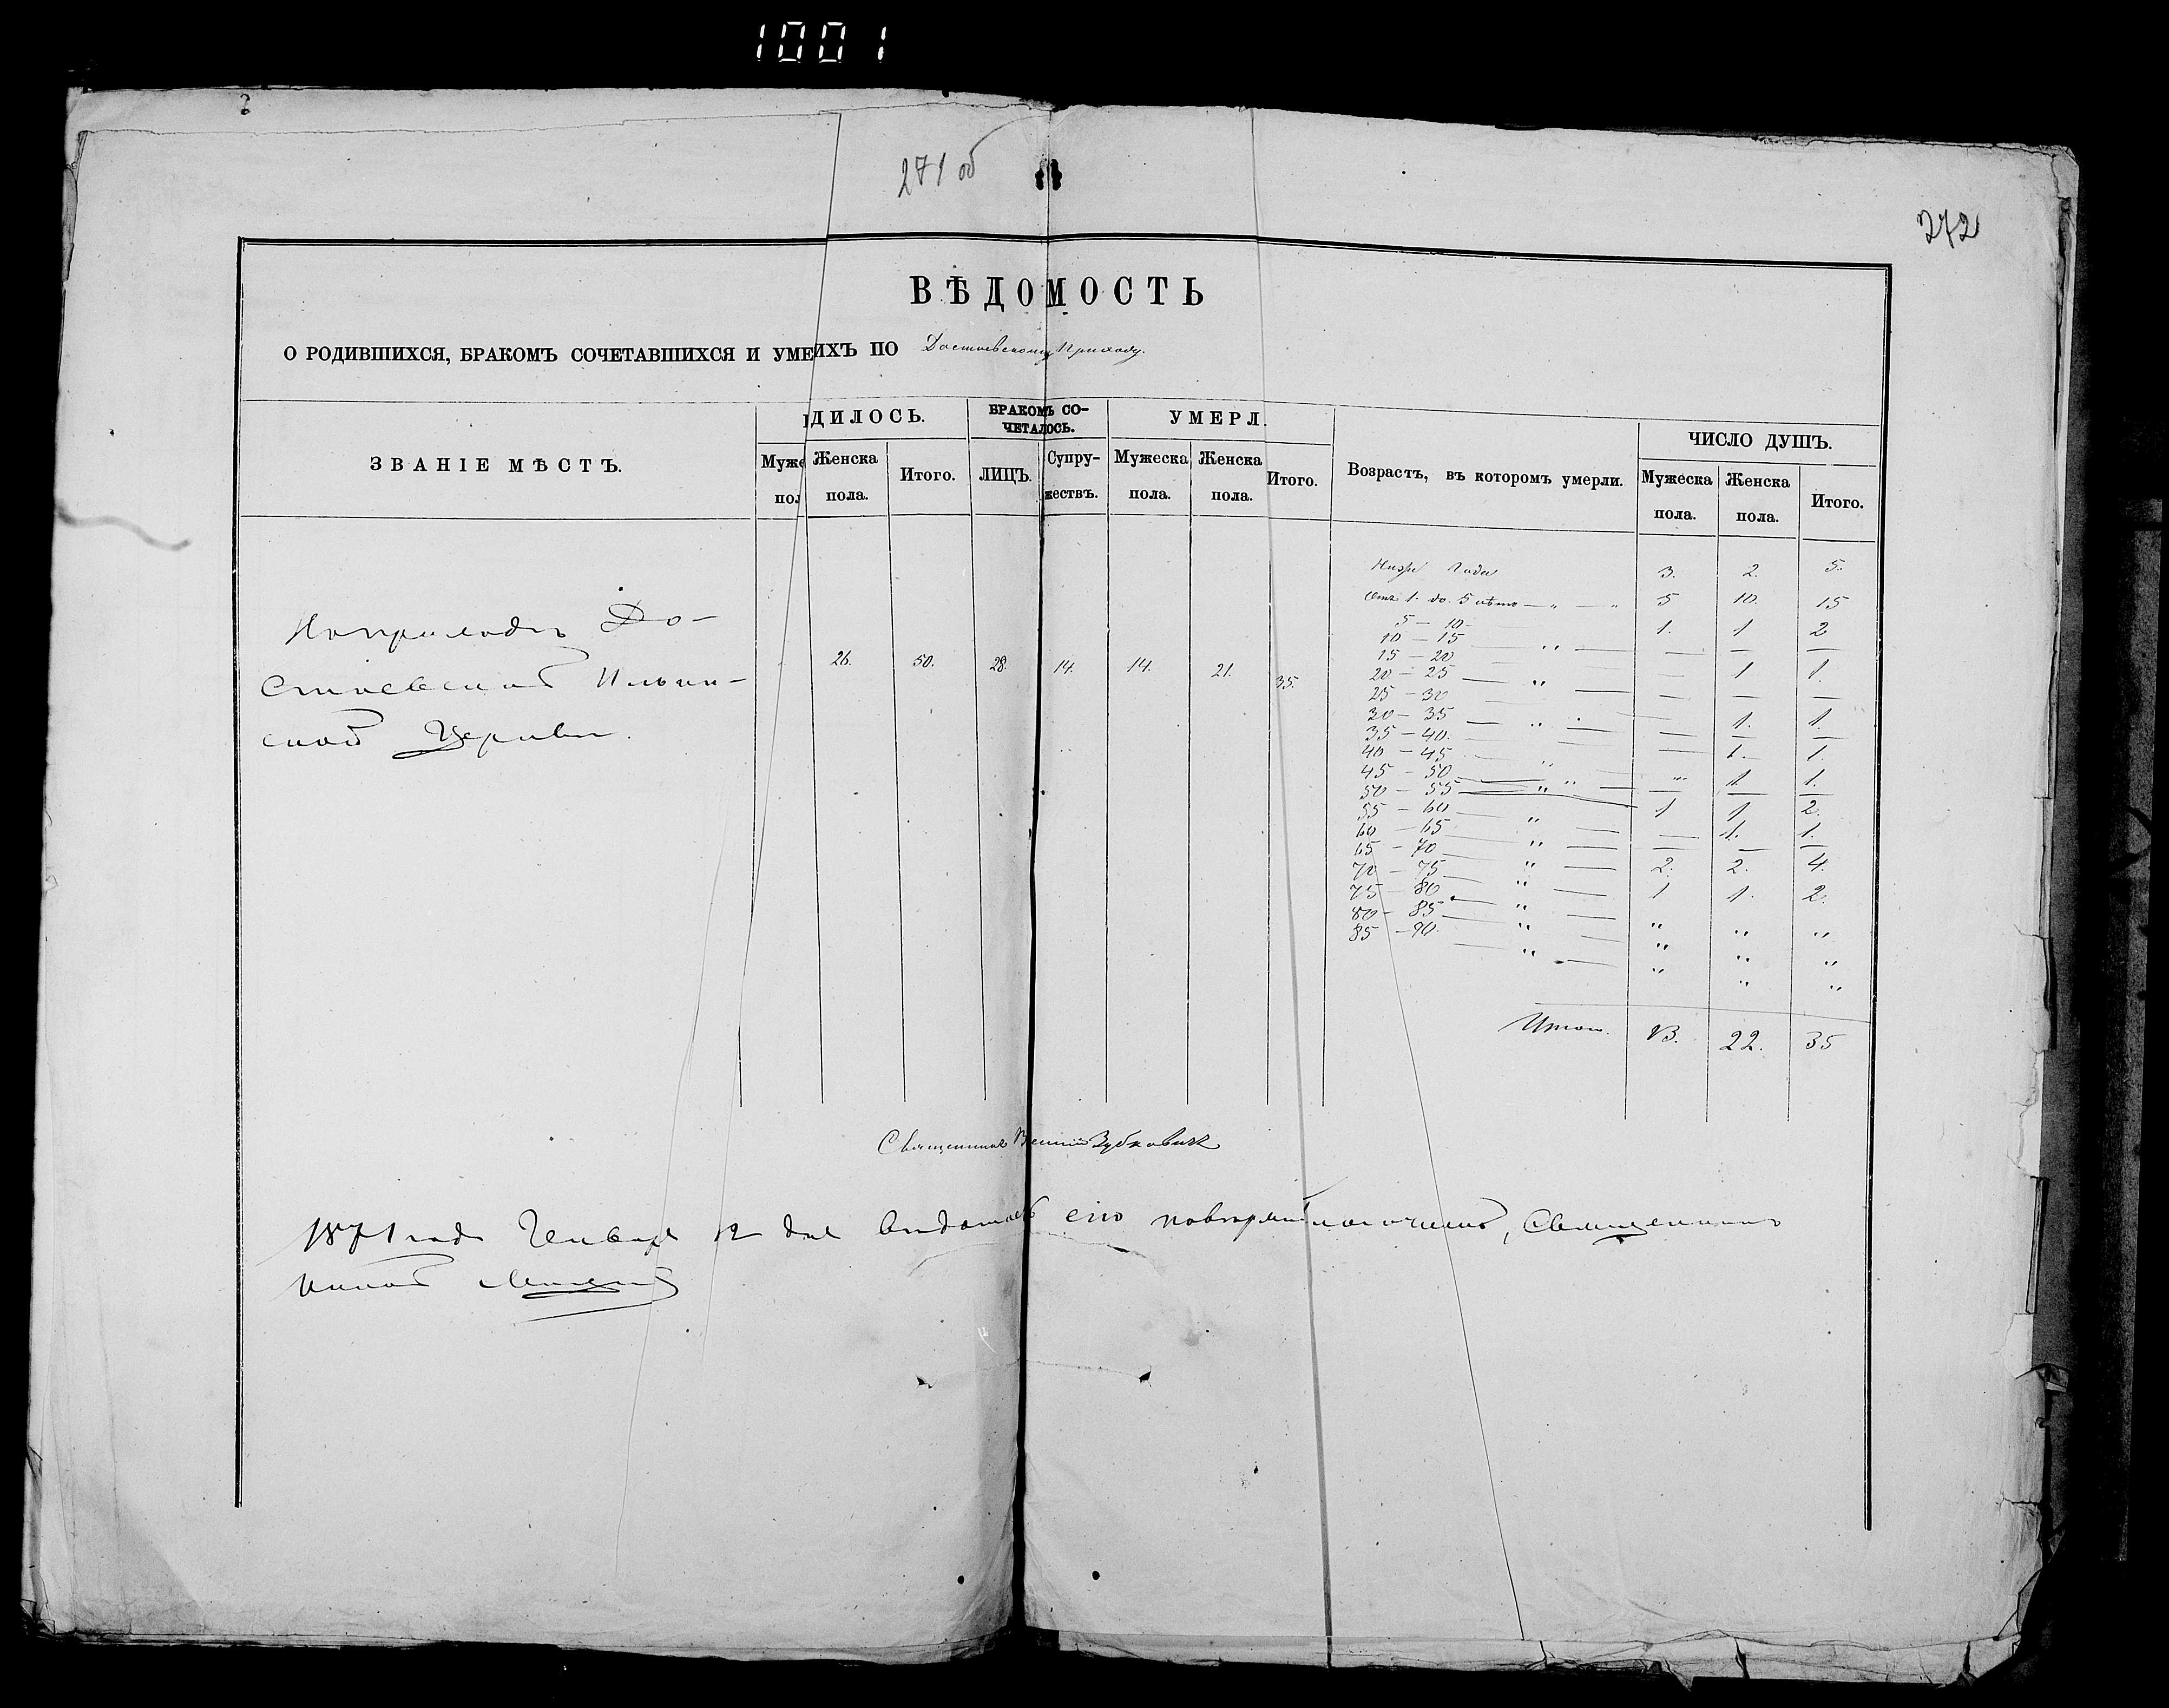 1001
271 об
272
ВѢДОМОСТЬ
О РОДИВШИХСЯ, БРАКОМЪ СОЧЕТАВШИХСЯ И УМЕ ИХЪ ПО Достоевскому Приходу.
ЗВАНІЕ МѢСТЪ.
ДИЛОСЬ.
БРАКОМЪ СО-
ЧЕТАЛОСЬ.
УМЕРЛ.
Возрастъ, въ которомъ умерли.
ЧИСЛО ДУШЪ.
Муже
пол
Женска
пола.
Итого.
ЛИЦЪ.
Супру-
жествъ.
Мужеска
пола.
Женска
пола.
Итого.
Мужеска
пола.
Женска
пола.
Итого.
До-
стоевской Ильин-
ской Церкви.
26. 50. 28. 14. 14. 21. 35.
Ниже года 3. 2. 5.
Отъ 1. до 5 лѣтъ — „ — „ 5 10. 15
5 — 10 1. 1 2
10 — 15 — „ — — — —
15 — 20 — 1 1.
20 — 25 — „ — — — —
25 — 30 — 1. 1.
30 — 35 — „ — — — —
35 — 40. — 1. 1.
40 — 45 „ „ 1. 1.
45 — 50 — „ — — — —
50 — 55 — „ — 1 1 2.
55 — 60 — „ — — 1. 1.
60 — 65 — „ — — — —
65 — 70 — „ — 2. 2. 4.
70 — 75 — „ — 1 1. 2.
75 — 80 — „ — „ „ „
80 — 85 — „ — „ „ „
85 — 90. — „ — „ „ „
Итого. 13. 22. 35
Священникъ Зубковичъ
1871 года Генваря 12 дня Священникъ